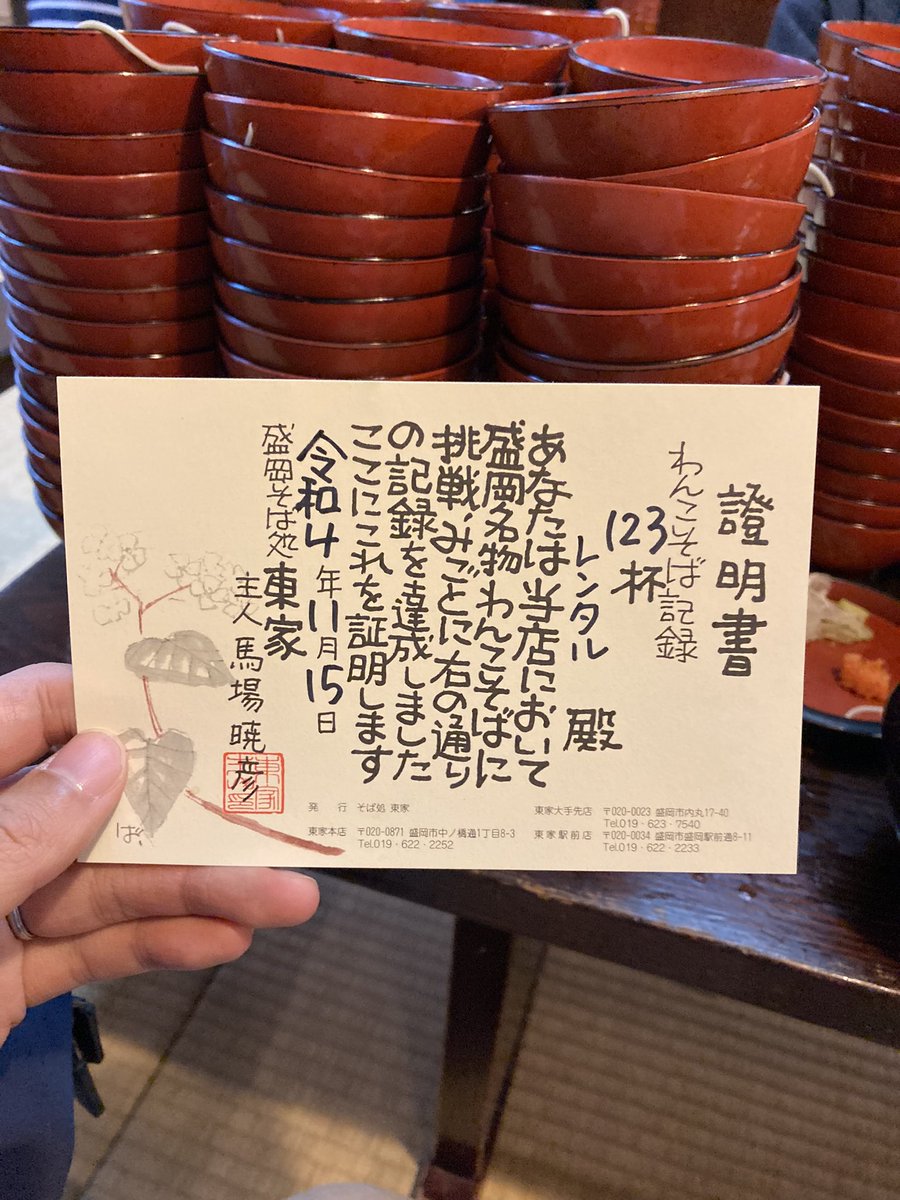 證明書
わんこそば記録
123杯
レンタル 殿
あなたは当店において
盛岡名物わんこそばに
挑戦、みごとに右の通り
の記録を達成しました
ここにこれを証明します
令和4年11月15日
盛岡そば処 東家
主人 馬場暁彦
東家
ば、
発行 そば処 東家
東家本店 〒020-0871 盛岡市中ノ橋通1丁目8-3
Tel.019・622・2252
東家大手先店 〒020-0023 盛岡市内丸17-40
Tel.019・623・7540
東家駅前店 〒020-0034 盛岡市盛岡駅前通8-11
Tel.019・622・2233